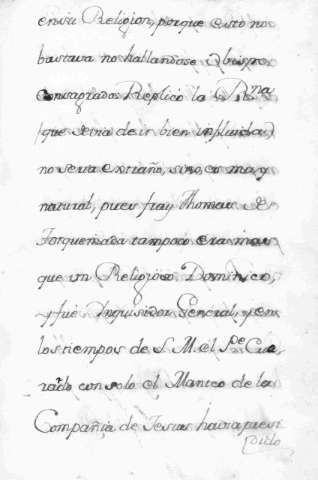 en su Religion, porque esto no
bastava no hallandose Obispos
Consagrados Replicó la Rna
(que devia de ir bien influida)
no sera extraño, sino, es muy
natural, pues fray Thomas de
Torquemada tampoco era mas
que un Religioso Dominico,
y fue Inquisidor General, y en
los tiempos de S. M. el Pe
rado con solo el Manteo de la
Compañia de Jesus havia presi
dido